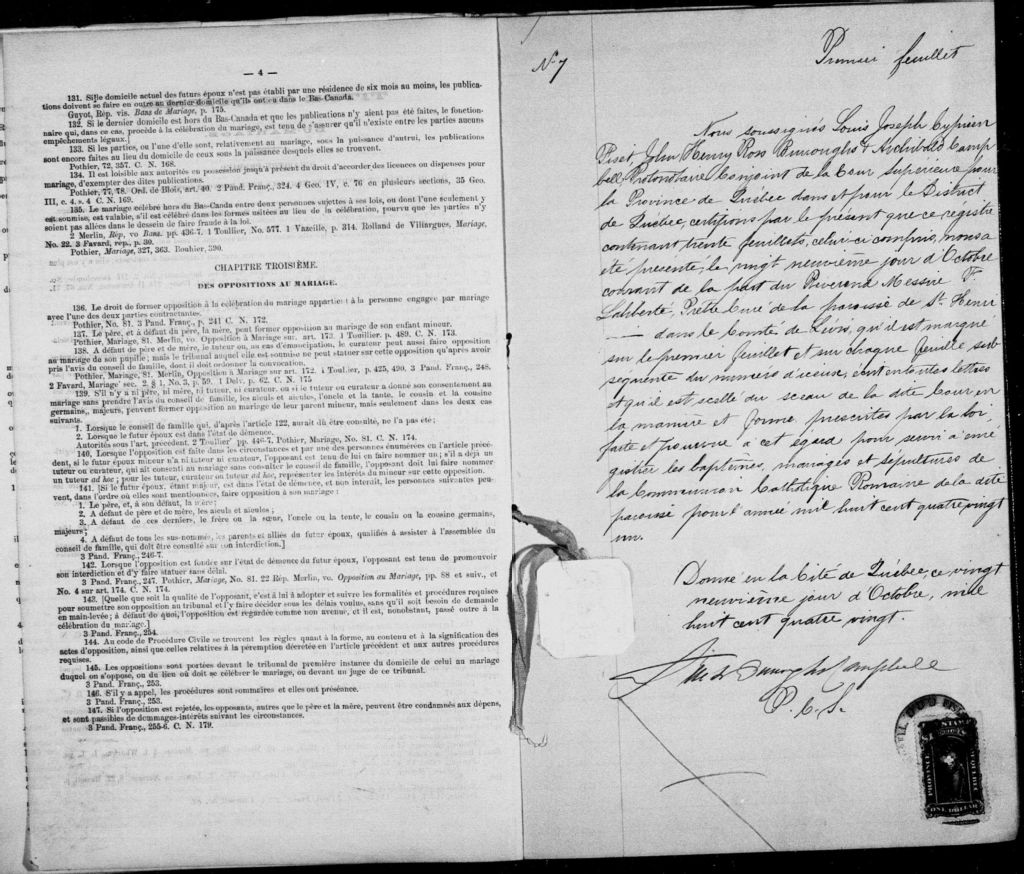 — 4 —
131. Si le domicile actuel des futurs époux n'est pas établi par une résidence de six mois au moins, les publica-
tions doivent se faire en outre au dernier domicile qu'ils ont eu dans le Bas-Canada.
Guyot, Rép. vis. Bans de Mariage, p. 175.
132. Si le dernier domicile est hors du Bas-Canada et que les publications n'y aient pas été faites, le fonction-
naire qui, dans ce cas, procède à la célébration du mariage, est tenu de s'assurer qu'il n'existe entre les parties aucuns
empêchements légaux.]
133. Si les parties, ou l'une d'elle sont, relativement au mariage, sous la puissance d'autrui, les publications
sont encore faites au lieu du domicile de ceux sous la puissance desquels elles se trouvent.
Pothier, 72, 357. C. N. 168.
134. Il est loisible aux autorités en possession jusqu'à présent du droit d'accorder des licences ou dispenses pour
mariage, d'exempter des dites publications.
Pothier, 77, 78. Ord. de Blois, art. 40. 2 Pand. Franç., 324. 4 Geo. IV, c. 76 en plusieurs sections, 35 Geo.
III, c. 4, s. 4 C. N. 169.
135. Le mariage célébré hors du Bas-Canda entre deux personnes sujettes à ses lois, ou dont l'une seulement y
est soumise, est valable, s'il est célébré dans les formes usitées au lieu de la célébration, pourvu que les parties n'y
soient pas allées dans le dessein de faire fraude à la loi.
2 Merlin, Rép, vo Bans. pp. 436-7. 1 Toullier, No. 577. 1 Vazeille, p. 314. Rolland de Villargues, Mariage,
No. 22. 3 Favard, rep., p. 30.
Pothier, Mariage, 327, 363. Bouhier, 390.
CHAPITRE TROISIÈME.
DES OPPOSITIONS AU MARIAGE.
136. Le droit de former opposition à la célébration du mariage appartient à la personne engagée par mariage
avec l'une des deux parties contractantes.
Pothier, No. 81. 3 Pand. Franç., p. 241 C. N. 172.
137. Le père, et à défaut du père, la mère, peut former opposition au mariage de son enfant mineur.
Pothier, Mariage, 81. Merlin, vo. Opposition à Mariage sur. art. 173. 1 Toullier, p. 489. C. N. 173.
138. A défaut de père et de mère, le tuteur ou, au cas d'émancipation, le curateur peut aussi faire opposition
au mariage de son pupille; mais le tribunal auquel elle est soumise ne peut statuer sur cette opposition qu'après avoir
pris l'avis du conseil de famille, dont il doit ordonner la convocation.
Pothier, Mariage, 81. Merlin, Opposition à Mariage sur art. 172. 1 Toullier, p. 425, 490. 3 Pand. Franç., 248.
2 Favard, Mariage sec. 2. § 1, No. 3, p. 59. 1 Delv., p. 62. C. N. 175
139. S'il n'y a ni père, ni mère, ni tuteur, ni curateur, ou si le tuteur ou curateur a donné son consentement au
mariage sans prendre l'avis du conseil de famille, les aïeuls et aïeules, l'oncle et la tante, le cousin et la cousine
germains, majeurs, peuvent former opposition au mariage de leur parent mineur, mais seulement dans les deux cas
suivants.
1. Lorsque le conseil de famille qui, d'après l'article 122, aurait dû être consulté, ne l'a pas été;
2. Lorsque le futur époux est dans l'état de démence.
Autorités sous l'art, précédent. 2 Toullier pp. 446-7. Pothier, Mariage, No. 81. C. N. 174.
140. Lorsque l'opposition est faite dans les circonstances et par une des personnes énoncées en l'article précé-
dent, si le futur époux mineur n'a ni tuteur ni curateur, l'opposant est tenu de lui en faire nommer un; s'il a déjà un
tuteur ou curateur, qui ait consenti au mariage sans consulter le conseil de famille, l'opposant doit lui faire nommer
un tuteur ad hoc; pour les tuteur, curateur ou tuteur ad hoc, représenter les intérêts du mineur sur cette opposition.
141. [Si le futur époux, étant majeur, est dans l'état de démence, et non interdit, les personnes suivantes peu-
vent, dans l'ordre où elles sont mentionnées, faire opposition à son mariage:
1. Le père, et, à son défaut, la mère;
2. A défaut de père et de mère, les aïeuls et aïeules;
3. A défaut de ces derniers, le frère ou la sœur, l'oncle ou la tente, le cousin ou la cousine germains,
majeurs;
4. A défaut de tous les sus-nommés, les parents et alliés du futur époux, qualifiés à assister à l'assemblée du
conseil de famille, qui doit être consulté sur son interdiction.]
3 Pand. Franç., 246-7.
142. Lorsque l'opposition est fondée sur l'état de démence du futur époux, l'opposant est tenu de promouvoir
son interdiction et d'y faire statuer sans délai.
3 Pand. Franç., 247. Pothier, Mariage, No. 81. 22 Rép. Merlin, vo. Opposition au Mariage, pp. 88 et suiv., et
No. 4 sur art. 174. C. N. 174.
143. [Quelle que soit la qualité de l'opposant, c'est à lui à adopter et suivre les formalités et procédures requises
pour soumettre son opposition au tribunal et l'y faire décider sous les délais voulus, sans qu'il soit besoin de demande
en main-levée; à défaut de quoi, l'opposition est regardée comme non avenue, et il est, nonobstant, passé outre à la
célébration du mariage.]
3 Pand. Franç., 254.
144. Au code de Procédure Civile se trouvent les règles quant à la forme, au contenu et à la signification des
actes d'opposition, ainsi que celles relatives à la péremption décrétée en l'article précédent et aux autres procédures
requises.
145. Les oppositions sont portées devant le tribunal de première instance du domicile de celui au mariage
duquel on s'oppose, ou du lieu où doit se célébrer le mariage, ou devant un juge de ce tribunal.
3 Pand. Franç., 253.
146. S'il y a appel, les procédures sont sommaires et elles ont préséance.
3 Pand. Franç., 253.
147. Si l'opposition est rejetée, les opposants, autres que le père et la mère, peuvent être condamnés aux dépens,
et sont passibles de dommages-intérêts suivant les circonstances.
3 Pand. Franç., 255-6. C. N. 179.
No 7
Premier feuillet
Nous soussignés Louis Joseph Cyprien
Fiset, John Henry Ross Burroughs & Archibald Camp-
bell, Protonotaire Conjoint de la Cour Supérieure pour
la Province de Québec dans et pour le District
de Québec, certifions par le présent que ce régistre
contenant trente feuillets, celui-ci compris, nous a
été présenté le vingt neuvième jour d'Octobre
courant de la part du Révérend Messire F.
Laliberté, Prêtre Curé de la paroisse de St. Henri
— dans le Comté de Lévis, qu'il est marqué
sur le premier feuillet et sur chaque feuille sub-
séquente du numéro d'icelle, écrit en toutes lettres
et qu'il est scellé du sceau de la dite Cour en
la manière et forme prescrites par la loi
faite et pourvue à cet égard pour servir à enré
gistrer les baptêmes, mariages et sépultures de
la Communion Catholique Romaine de la dite
paroisse pour l'année mil huit cent quatre vingt
un.
Donné en la Cité de Québec, ce vingt
neuvième jour d'Octobre, mille
huit cent quatre vingt.
Fiset Burroughs Campbell
P. C. S.
STAMP
PROVINCE
ONE DOLLAR